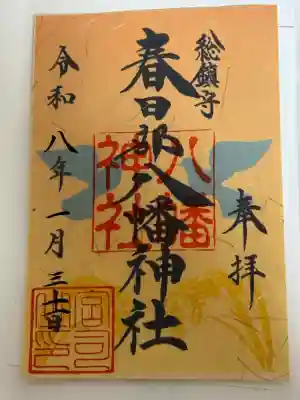 奉拝
総鎮守
春日部八幡神社
八幡神社
令和八年一月三十一日
宮司之印